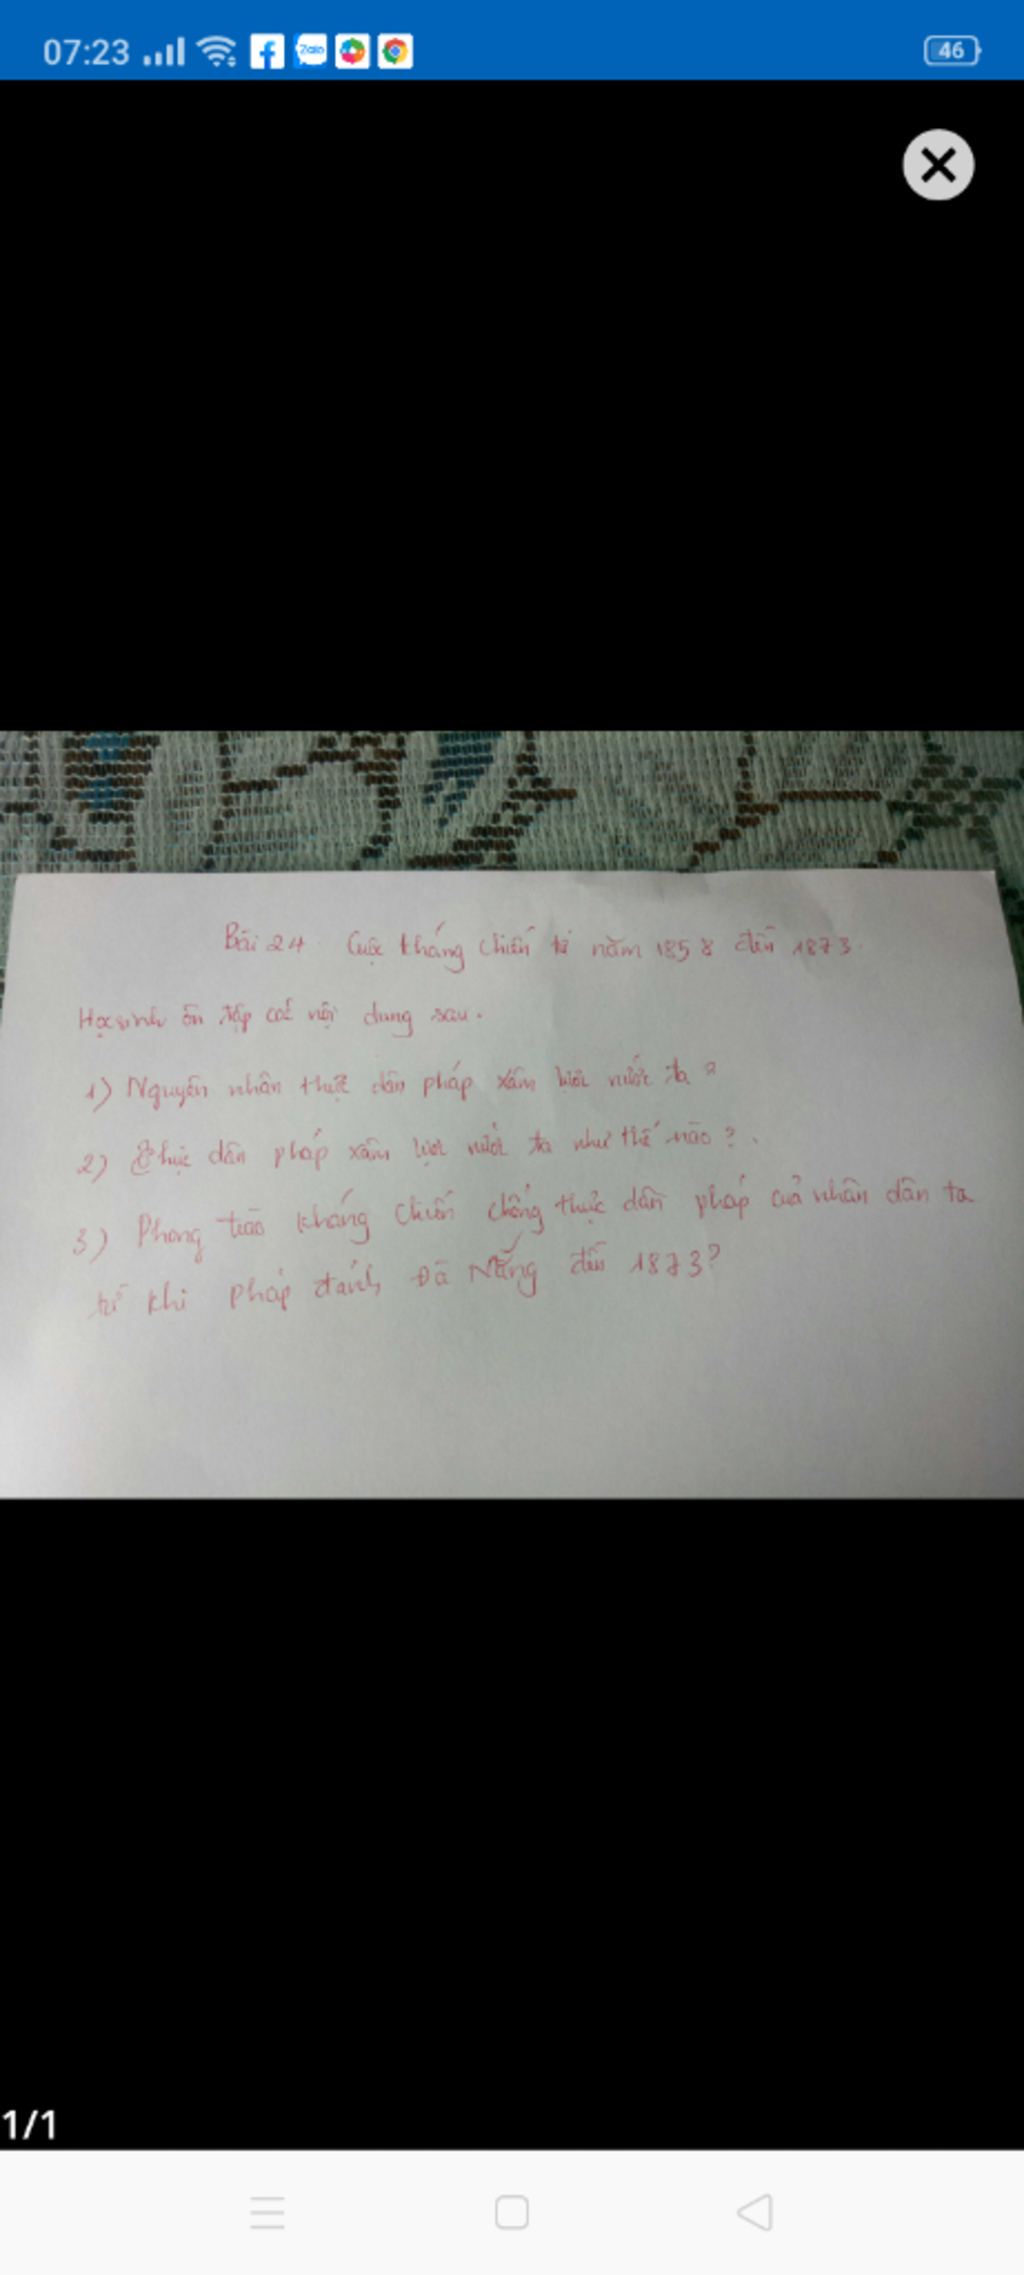 07:23
Zalo
46
Bài 24 Cuộc kháng chiến từ năm 1858 đến 1873.
Học sinh ôn tập các nội dung sau.
1) Nguyên nhân thực dân pháp xâm lược nước ta?
2) Thực dân pháp xâm lược nước ta như thế nào?.
3) Phong trào kháng chiến chống thực dân pháp của nhân dân ta
từ khi pháp đánh Đà Nẵng đến 1873?
1/1